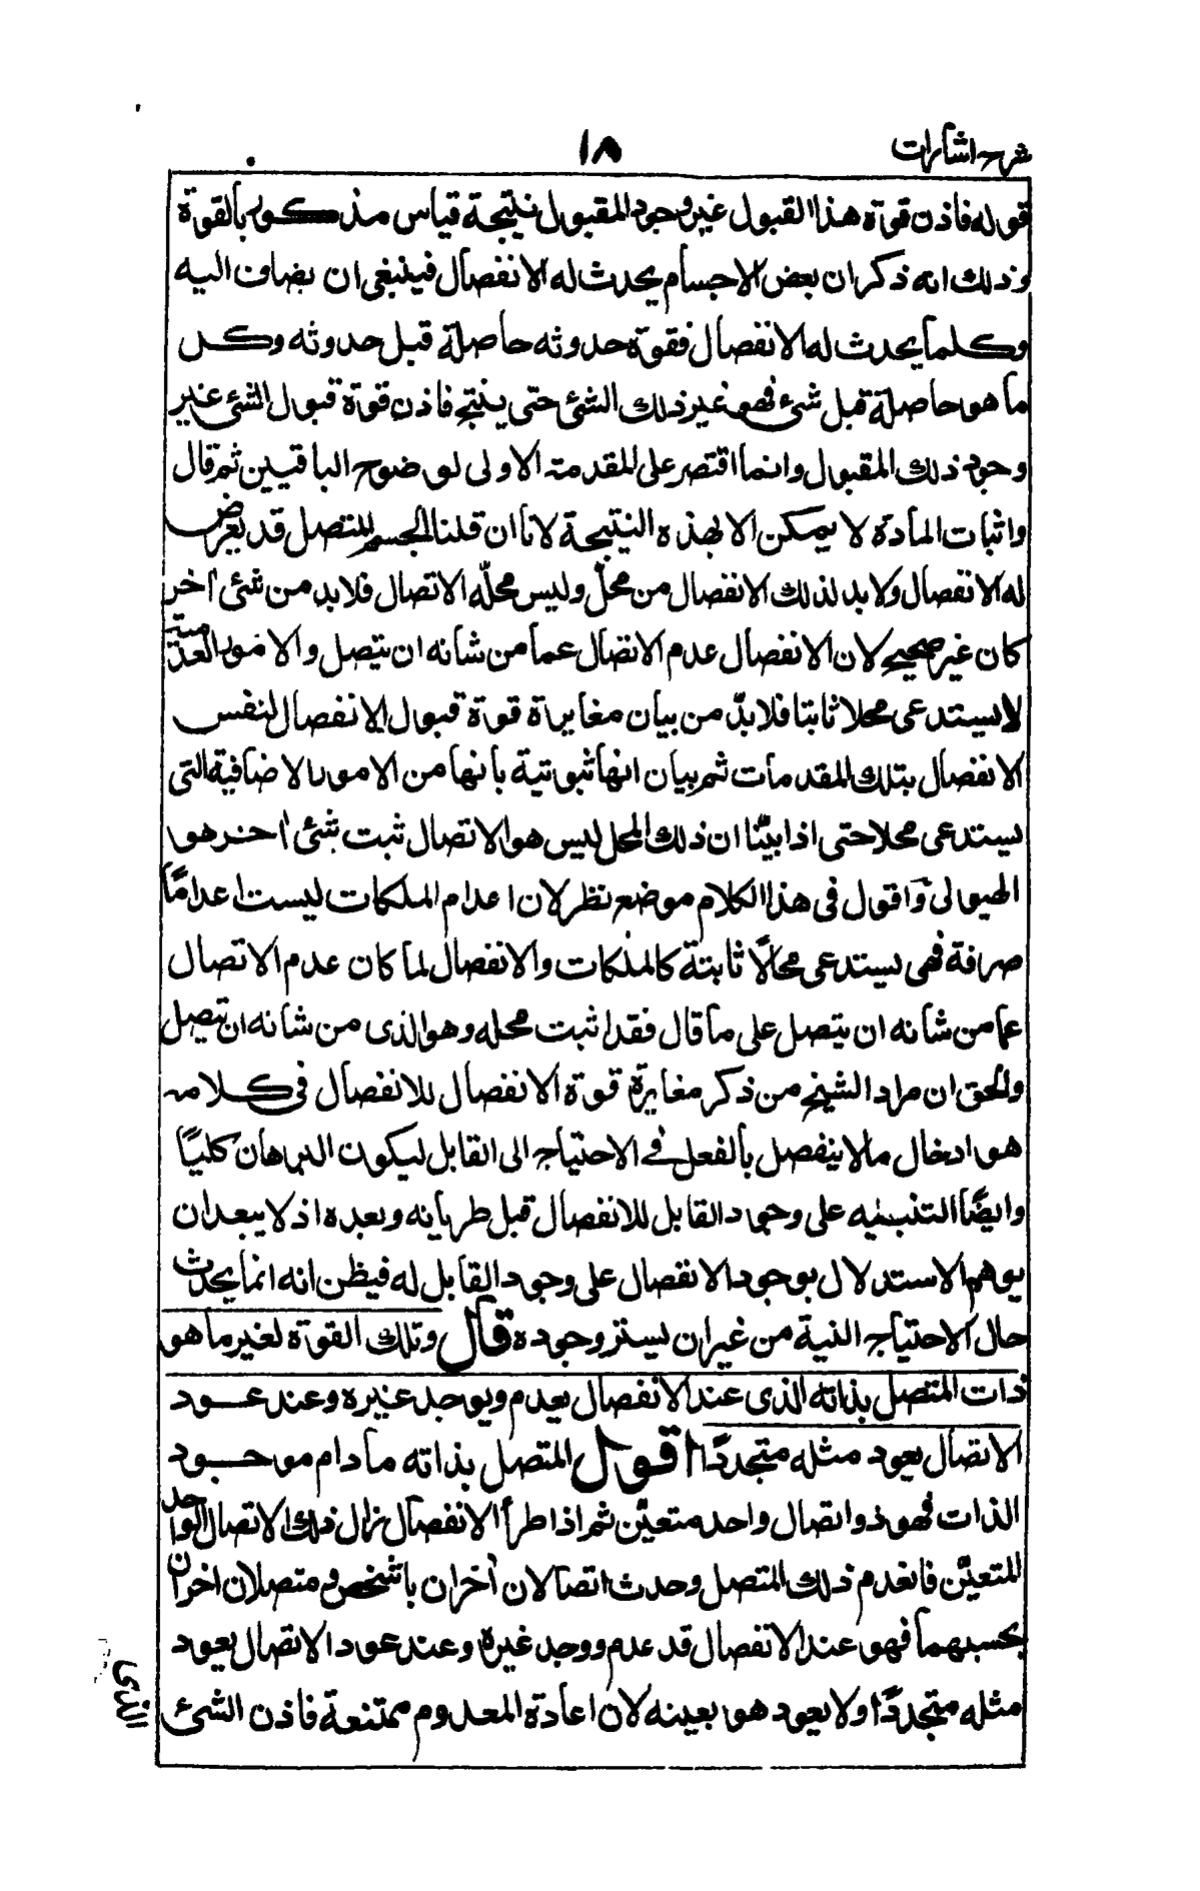 شرح اشارات
١٨
قوله فاذن قوة هذا القبول غير وجود المقبول نتيجة قياس مذكور بالقوة
وذلك انه ذكر ان بعض الاجسام يحدث له الانفصال فينبغى ان يضاف اليه
وكلما يحدث له الانفصال فقوة حدوثه حاصلة قبل حدوثه وكل
ما هو حاصلة قبل شئ فهو غير ذلك الشئ حتى ينتج فاذن قوة قبول الشئ غير
وجود ذلك المقبول وانما اقتصر على المقدمة الاولى لوضوح الباقيتين ثم قال
واثبات المادة لا يمكن الا بهذه النتيجة لانا ان قلنا الجسم المتصل قد يعرض
له الانفصال ولا بد لذلك الانفصال من محلّ وليس محلّه الاتصال فلابد من شئ اٰخر
كان غير صحيح لان الانفصال عدم الاتصال عما من شانه ان يتصل والامور العدمية
لا يستدعى محلا ثابتا فلابدّ من بيان مغايراة قوة قبول الانفصال لنفس
الانفصال بتلك المقدمات ثم بيان انها ثبوتية بانها من الامور الاضافية التى
يستدعى محلا حتى اذا بيّنّا ان ذلك المحل ليس هو الاتصال ثبت شئ اٰخر هو
الهيولى وَاقول فى هذا الكلام موضع نظر لان اعدام الملكات ليست اعدامًا
صرافة فهى يستدعى محالّا ثابتة كالملكات والانفصال لما كان عدم الاتصال
عما من شانه ان يتصل على ما قال فقد اثبت محله وهو الذى من شانه ان يتصل
والحق ان مراد الشيخ من ذكر مغايرة قوة الانفصال للانفصال فى كلامه
هو ادخال مالا ينفصل بالفعل فى الاحتياج الى القابل ليكون البرهان كليًا
وايضًا التنبيه على وجود القابل للانفصال قبل طريانه وبعده اذ لا يبعد ان
يوهم الاستدلال بوجود الانفصال على وجود القابل له فيظن انه انما يحدث
حال الاحتياج النية من غير ان يستر وجوده قال وتلك القوة لغير ما هو
ذات المتصل بذاته الذى عند الانفصال يعدم ويوجد غيره وعند عود
الاتصال يعود مثله متجددًا اقول المتصل بذاته ما دام موجود
الذات فهو ذو اتصال واحد متعيّن ثم اذا طرأ الانفصال زال ذلك الاتصال الواحد
المتعيّن فانعدم ذلك المتصل وحدث اتصالان اٰخران بالشخص ومتصلان اخران
بحسبهما فهو عند الانفصال قد عدم ووجد غيره وعند عود الاتصال يعود
مثله متجددًا ولا يعود هو بعينه لان اعادة المعدوم ممتنعة فاذن الشئ
الذى